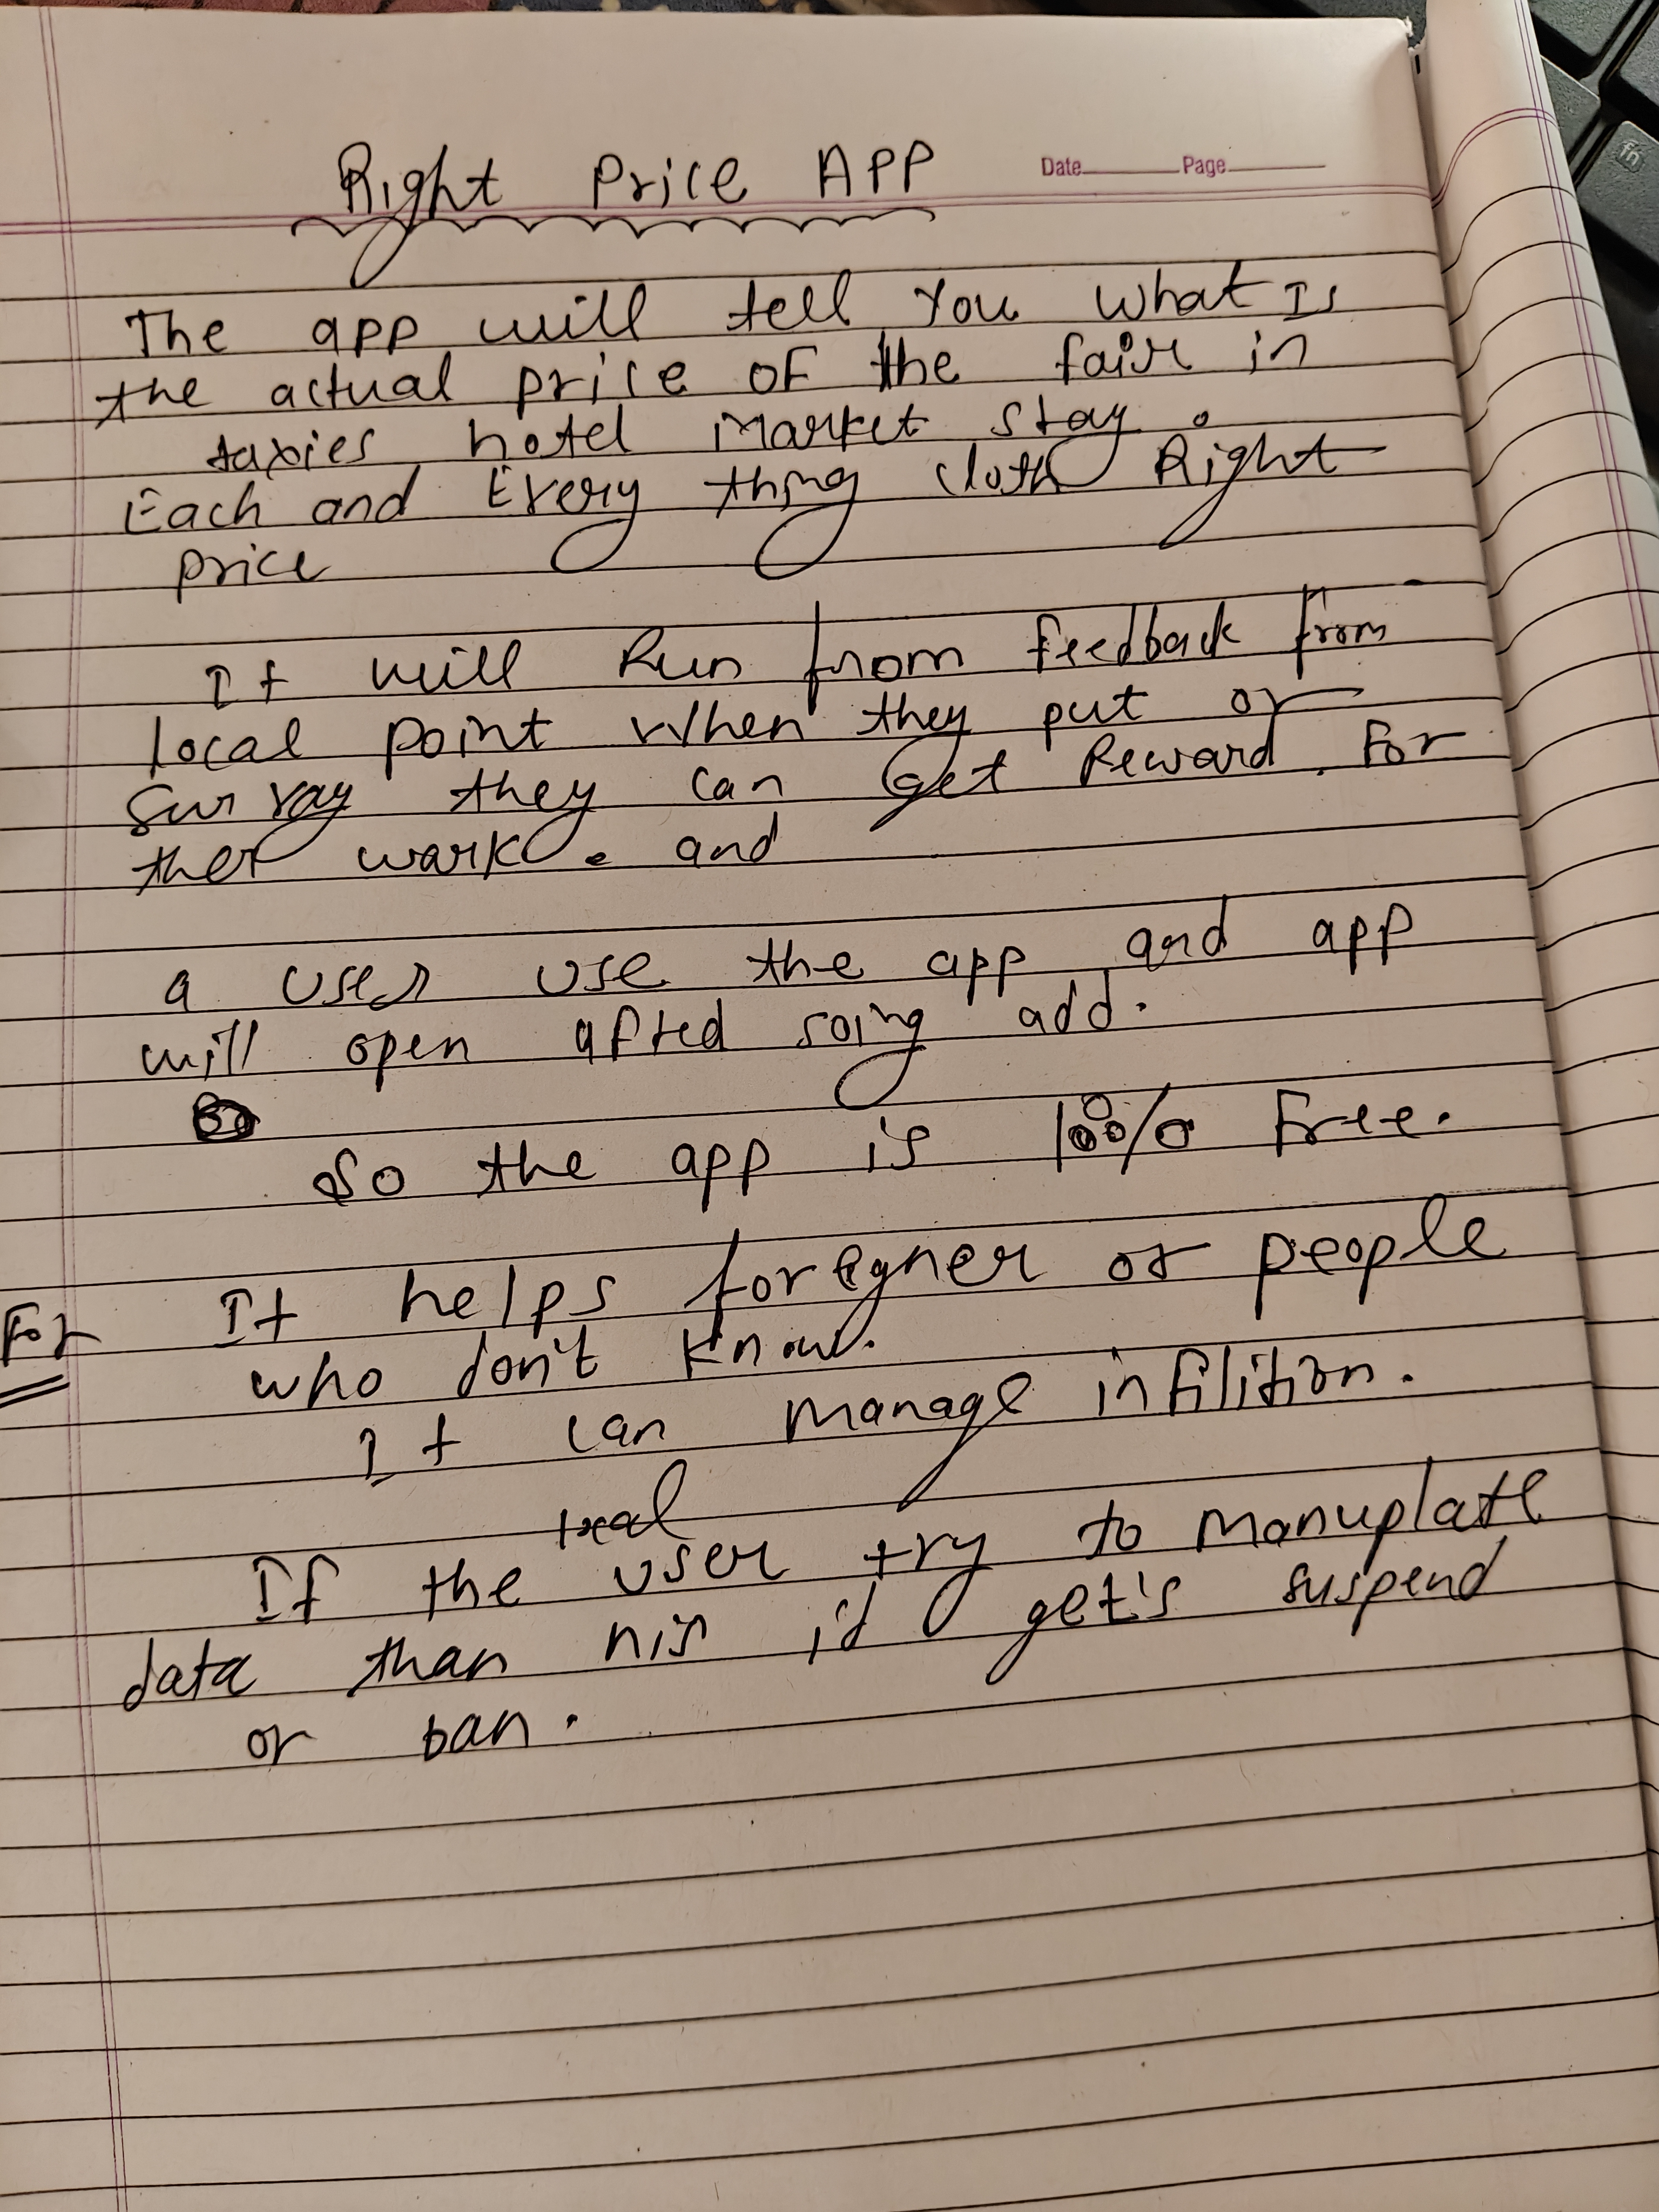 Right Price APP
Date Page
The app will tell You what Is
the actual price of the fair in
taxies hotel market stay.
Each and Every thing cloth Right
price
It will Run from feedback from
local point when they put or
survay they can get Reward. For
ther wark. and
a user use the app and app
will open afted soing add.
So the app is 100% Free.
For It helps foregner or people
who don't know.
It can manage infilition.
local
If the user try to manuplate
data than his id get's suspend
or ban.
fn